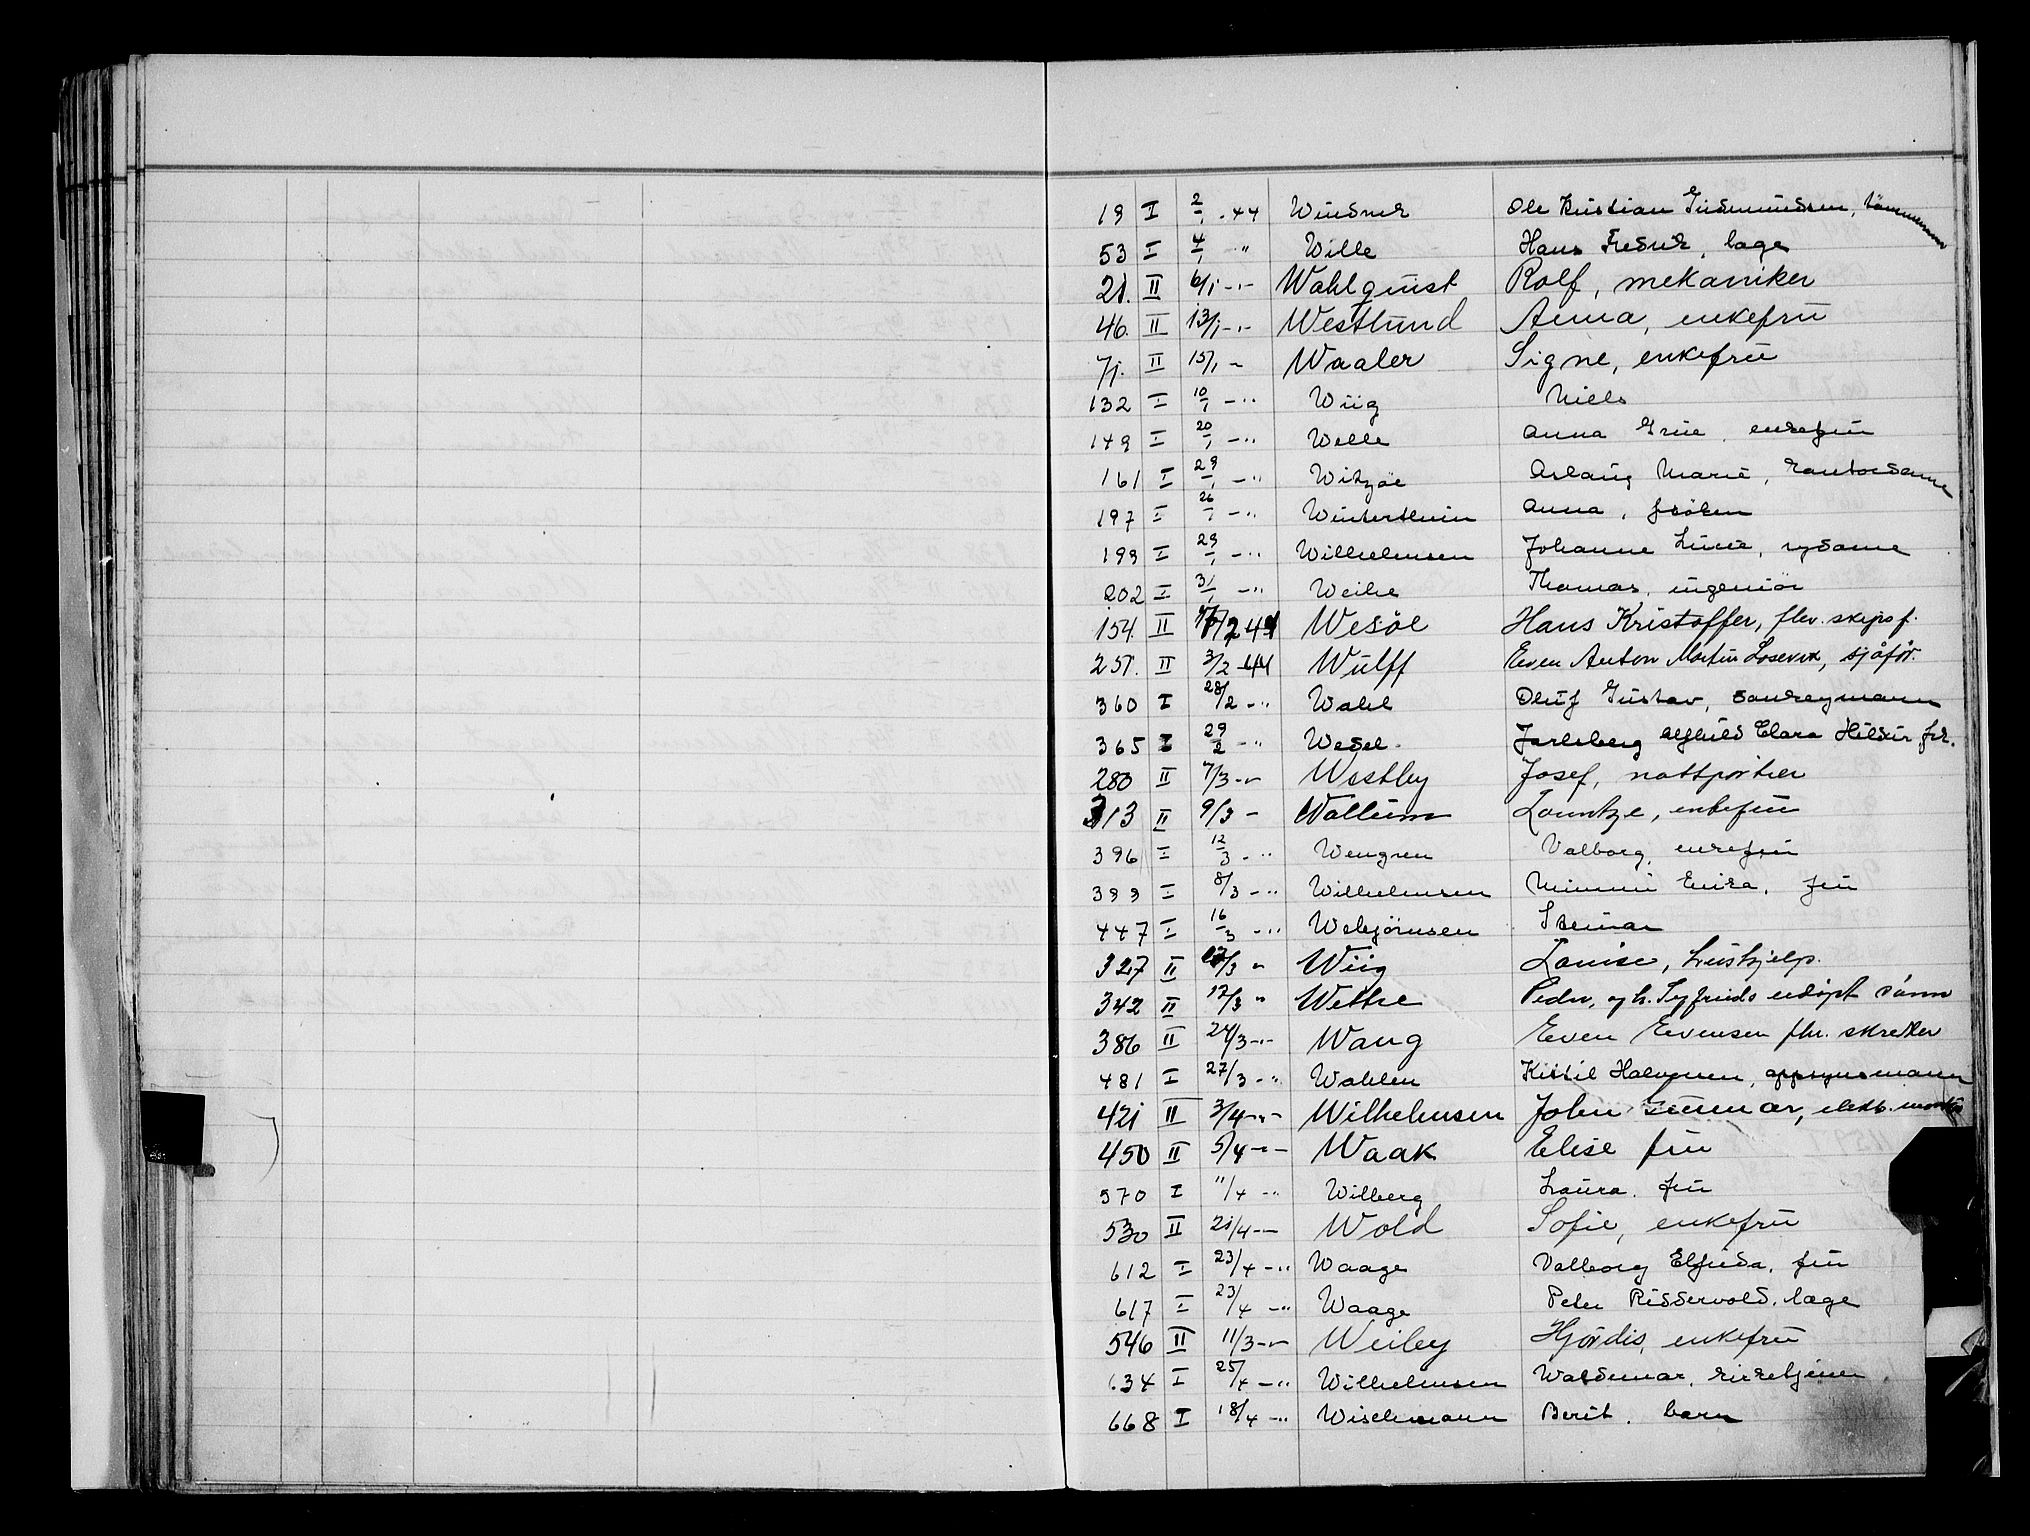 19 I 2/1 -44 Windsnes Ole Kristian Gudmundsen, tömmerm
53 I 4/1 " Wille Hans Fredrik, læge
21. II 6/1 -"- Wahlquist Rolf, mekaniker
46. II 13/1 -"- Westlund Anna, enkefru
71. II 15/1 - Waaler Signe, enkefru
132 I 10/1 -" Wiig Niels
149 I 20/1 -" Welle Anna Grue, enkefru
161 I 29/1 -" Witzøe Aslaug Marie, kontordame
197 I 26/1 -" Winterthun Anna, frøken
199 I 29/1 -" Wilhelmsen Johanne Lucie, sydame
202 I 31/1 -" Weihe Thomas, ingeniør
154. II /2 44 Wesöe Hans Kristoffer, fhv. skipsf.
251. II 3/2 -44 Wulff Even Anton Martin, sjåfør.
360 I 28/2 -" Wahl Oluf Gustav,
365 I 29/2 -" Wedel- Jarlsberg Alfhild Clara Hildur, frk.
280 II 7/3 -"- Westby Josef, nattportier
313 II 9/3 - Wallum enkefru
396 I 12/3 -" Wengren Valborg, enkefru
399 I 8/3 -" Wilhelmsen Mimmi Erika, fru
447 I 16/3 -" Webjörnsen Steinar
327 II /3 " Wiig Louise, hushjelp.
342 II 17/3 " Wettre Peder, og h. Sigfrids udöpt sönn
386 II 24/3 -"- Wang Even Evensen fhv. skredder
481 I 27/3 -" Wahlen Kittil Halvorsen, oppsynsmann
421 II 3/4 -"- Wilhelmsen John Gunnar, elektr. montör
450 II 5/4 -"- Waak Elise fru
570 I 11/4 -" Wilberg Laura, fru
530 II 21/4 -- Wold Sofie, enkefru
612 I 23/4 -" Waage Valborg Elfrida, fru
617 I 23/4 -" Waage Peter Riddervold, læge
546 II 11/3 -"- Weiby Hjördis, enkefru
634 I 25/4 -" Wilhelmsen Waldemar, kirketjener
668 I 18/4 -" Wischmann Berit, barn